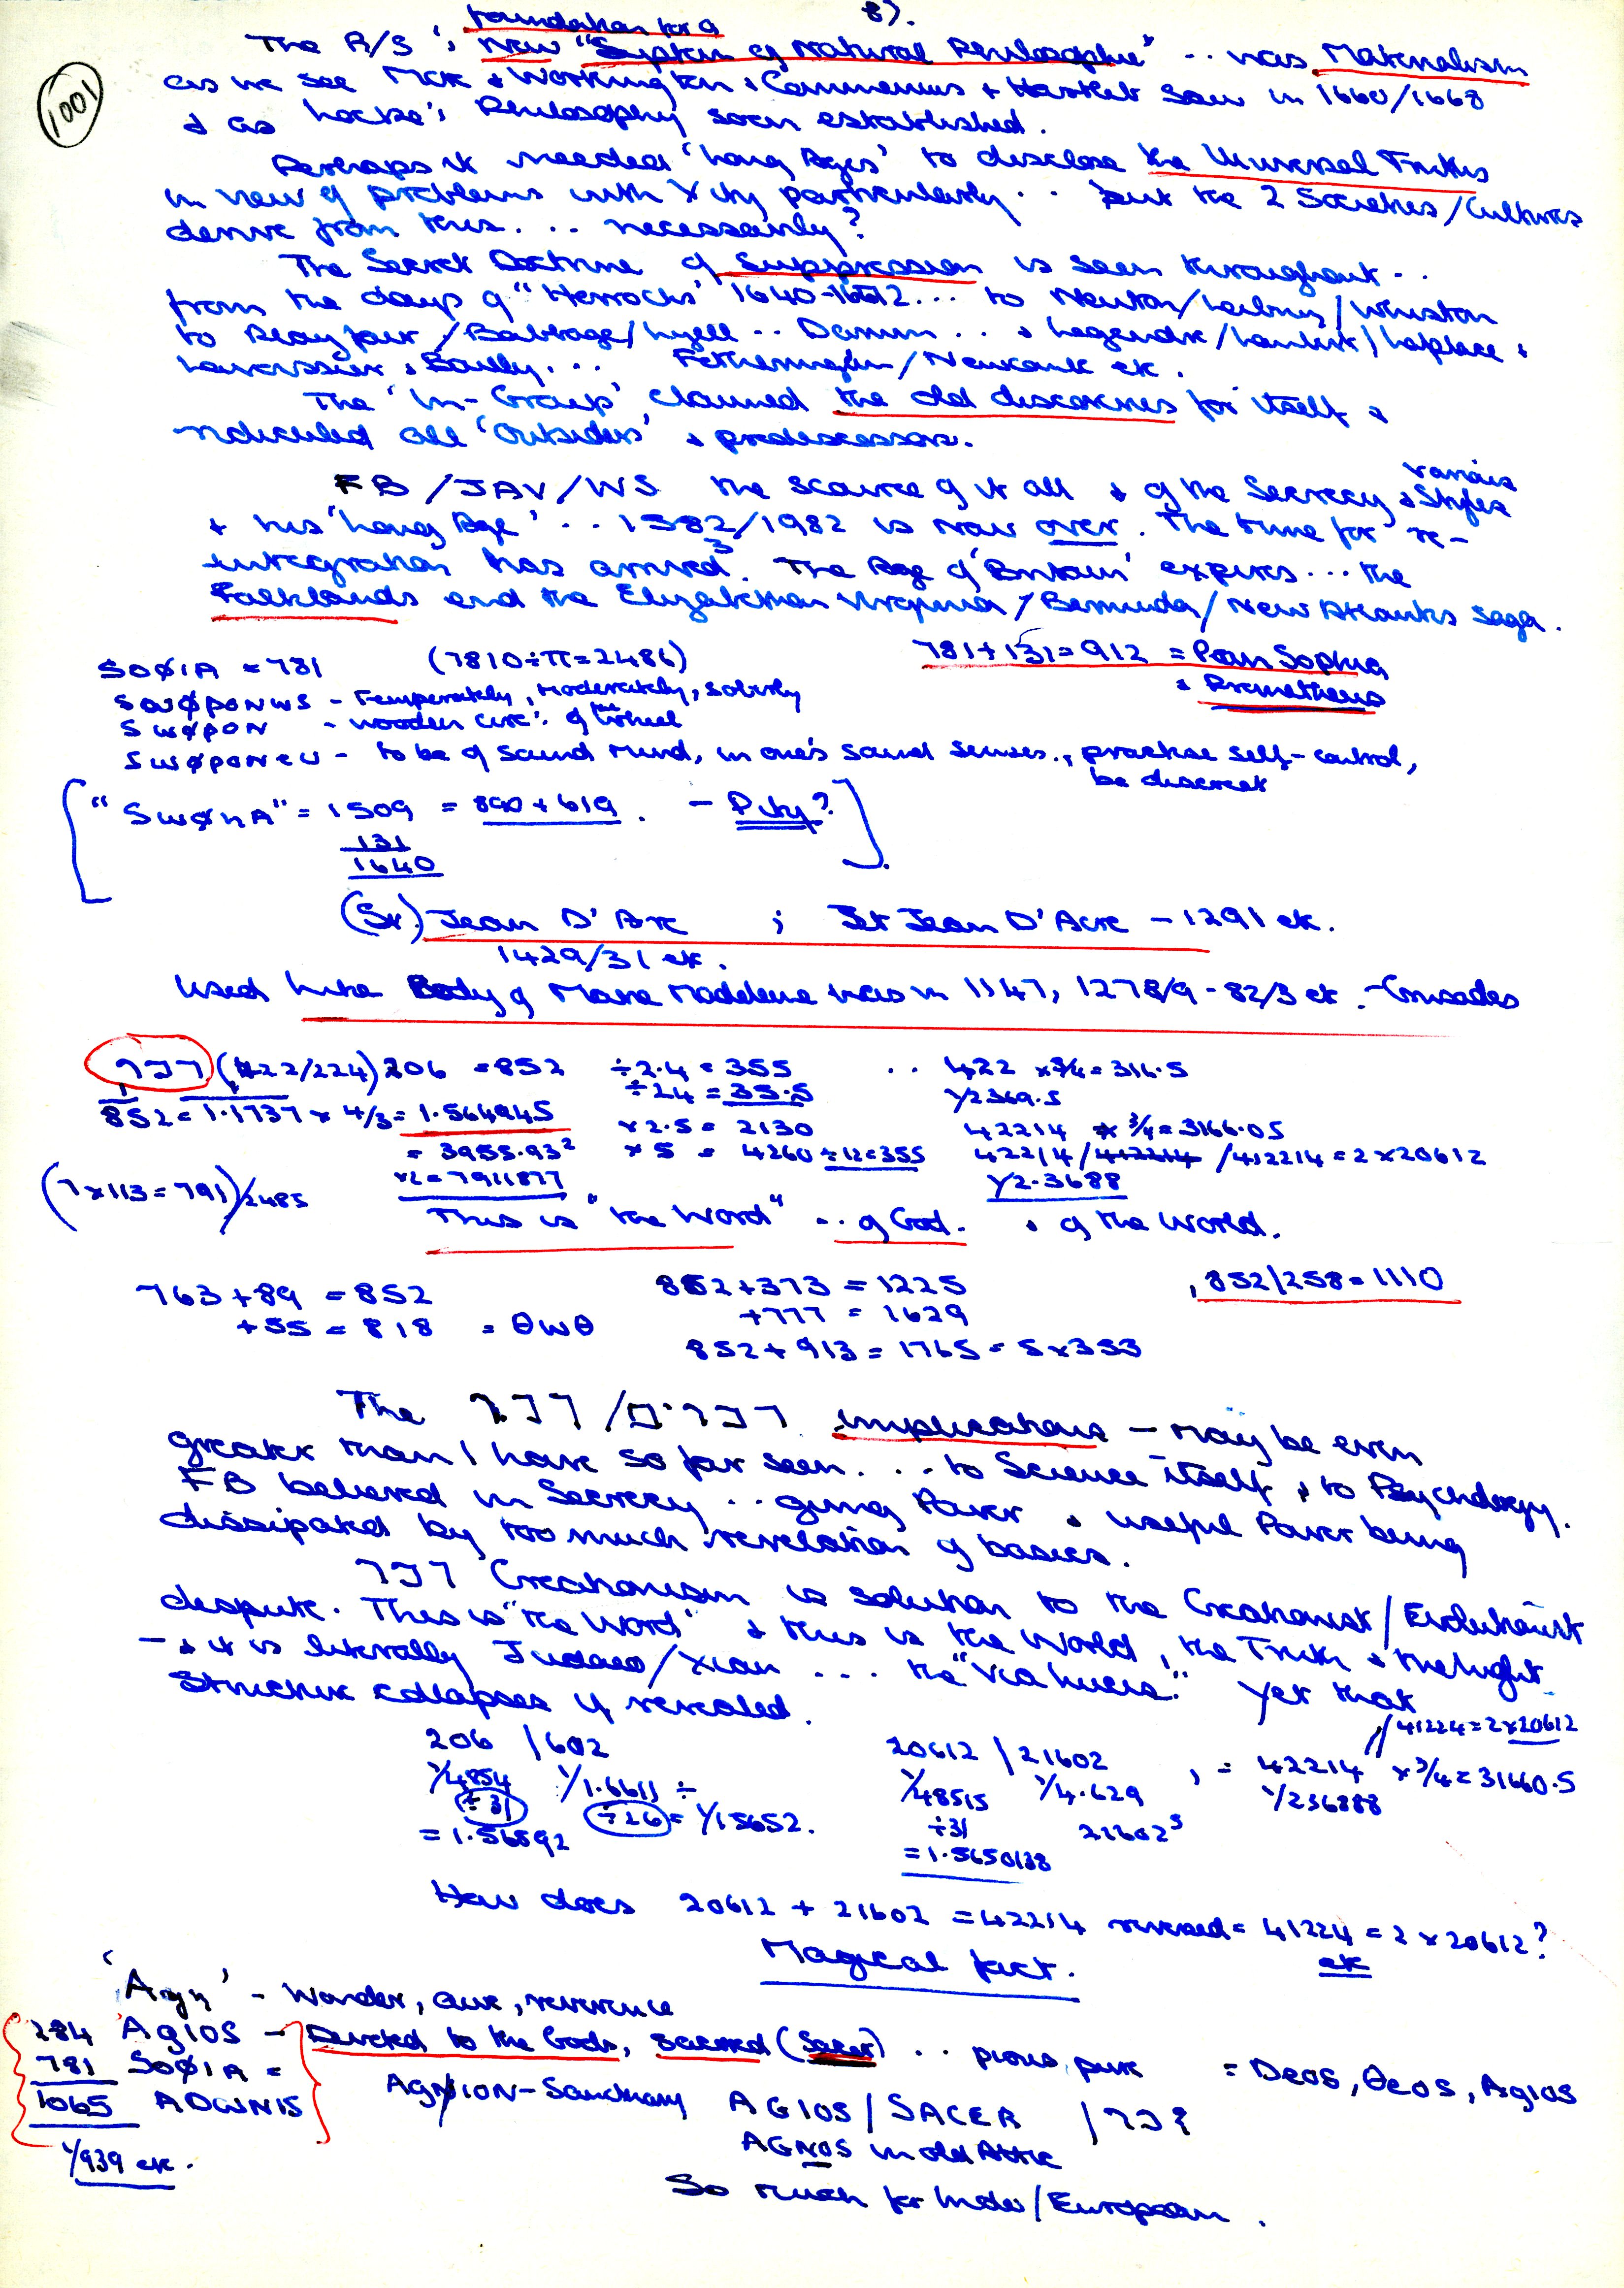 8).
1001
foundation for a
The R/S's New "System of Natural Philosophie" .. was Materialism
as we see More & Workington & Commenius & Hartlib saw in 1660/1668
& as Locke's Philosophy soon established.
Perhaps it needed 'Long Ages' to disclose the Universal Truths
in view of problems with Xity particularly .. but the 2 Societies/Cultures
derive from this ... necessarily?
The Secret Doctrine of Suppression is seen throughout ..
from the days of "Horrocks' 1640- ... to Newton/Leibniz/Whiston
to Playfair/Babbage/Lyell .. Darwin ... & Legendre/ /Laplace &
& Bailly ... etc.
The 'In-Group' claimed the old discoveries for itself &
ridiculed all 'Outsiders' & predescessors.
FB/JAV/WS the source of it all & of the Secrecy & various Styles
& his 'Long Age' .. 1582/1982 is now over. The time for re-
integration has arrived. The Age of 'Britain' expires ... the
3
Falklands end the Elizabethan Virginia/Bermuda/New Atlantis saga.
SOØIA = 781 (7810÷π=2486) 781+131=912 = Pan Sophia
& Prometheus
SWØPONWS - Temperately, Moderately, Soberly
SWØPON - wooden circ: of the wheel
SWØPONEU - to be of sound mind, in one's sound senses, practise self-control,
be discreet
["SWØHA" = 1509 = 890+619. - Pity?].
131
1640
(St.) Jean D'Arc ; St Jean D'Acre - 1291 etc.
1429/31 etc.
Used like Body of Marie Madelene was in 1147, 1278/9-82/3 etc. - Crusades
רבד (422/224) 206 = 852 ÷2.4 = 355 .. 422 x3/4=316.5
÷24 = 35.5 1/2369.5
852 = 1.1737 x 4/3 = 1.564945 x2.5 = 2130 42214 x 3/4=3166.05
= 3955.93² x5 = 4260÷12=355 42214/412214/412214=2x20612
x2=7911877 1/2.3688
(7x113=791)/2485
This is "the Word" .. of God. & of the World.
763+89 = 852 852+373 = 1225 , 852/258=1110
+55 = 818 = ΘWΘ +777 = 1629
852+913 = 1765 = 5x353
The רבד/ם.רבד implications - may be even
greater than I have so far seen ... to Science itself & to Psychology.
FB believed in Secrecy .. giving Power & useful Power being
dissipated by too much revelation of basics.
רבד Creationism is solution to the Creationist/Evolutionist
dispute. This is "the Word" & this is the World, the Truth & the Light
- & it is literally Judaeo/Xian ... the "Via Lucis". Yet that
Structure collapses if revealed.
206 /602 20612/21602 , = 42214 x3/4=31660.5
//41224=2x20612
1/4854 1/1.6611÷ 1/48515 1/4.629 1/236888
÷31 ÷26 = 1/15652. ÷31 21602⁵
= 1.56592 = 1.5650138
How does 20612 + 21602 = 42214 reversed = 41224 = 2 x 20612?
etc
Magical fact.
'Ayn' - Wonder, awe, reverence
284 AgIOS - Devoted to the Gods, sacred (Sacer) .. pious, pure = Deos, θeos, Agios
781 SOØIA =
1065 ADWNIS AGNION-Sanctuary AGIOS/SACER
AGNOS in old Attic
1/939 etc.
So much for Indo/European.